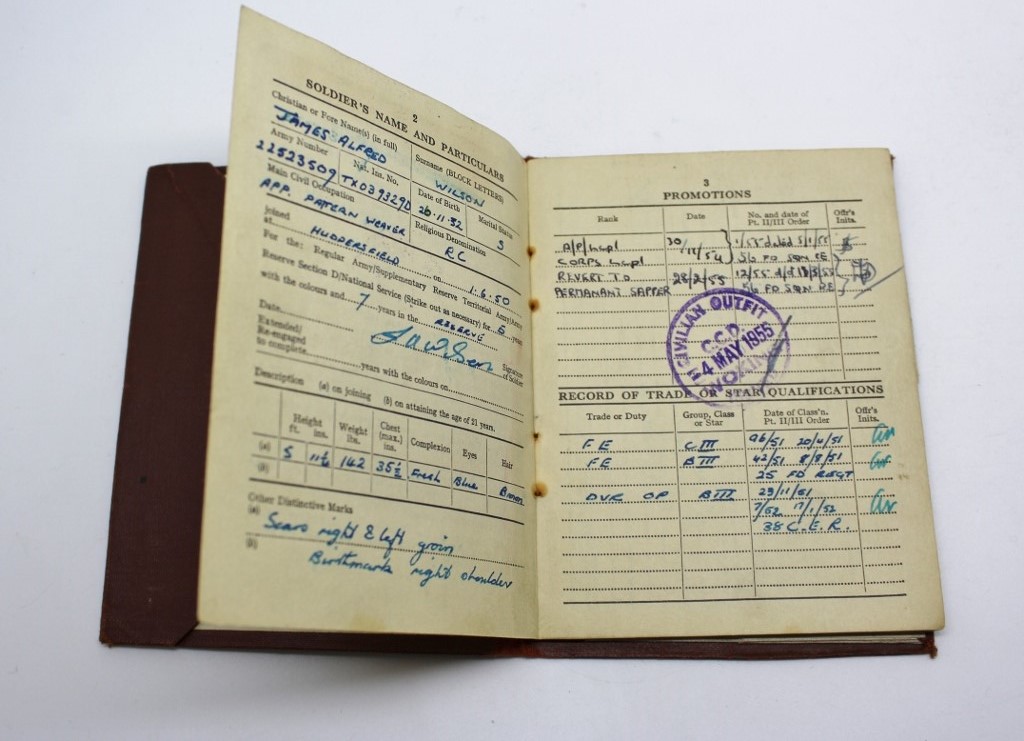 2
SOLDIER'S NAME AND PARTICULARS
Christian or Fore Name(s) (in full)
JAMES ALFRED
Surname (BLOCK LETTERS)
WILSON
Army Number
22523509
Nat. Ins. No.
TX039329D
Date of Birth
26.11.32
Marital Status
S
Main Civil Occupation
APP. PATERN WEAVER
Religious Denomination
RC
Joined
at HUDDERSFIELD on 1.6.50
For the: Regular Army/Supplementary Reserve Territorial Army/Army
Reserve Section D/National Service (Strike out as necessary) for 5 years
with the colours and 7 years in the RESERVE
Date
Signature
of Soldier
Extended/
Re-engaged
to complete years with the colours on
Description (a) on joining (b) on attaining the age of 21 years.
Height
ft. ins.
Weight
lbs.
Chest
(max.)
ins.
Complexion
Eyes
Hair
(a) 5 11½ 142 35½ Fresh Blue Brown
(b)
Other Distinctive Marks
(a)
Scars right & left groin
(b)
Birthmark right shoulder
3
PROMOTIONS
Rank
Date
No. and date of
Pt. II/III Order
Offr's
Inits.
A/P/L/Cpl 30/11/54 1/55 dated 5/1/55
CORPS L/Cpl 56 FD SQN RE
REVERT TO 28/2/55 12/55
PERMANANT SAPPER 56 FD SQN RE
CIVILIAN OUTFIT
C.C.D.
4 MAY 1955
WOKING
RECORD OF TRADE OR STAR QUALIFICATIONS
Trade or Duty
Group, Class
or Star
Date of Class'n.
Pt. II/III Order
Offr's
Inits.
F E C III 96/51 20/4/51
F E B III 42/51 8/8/51
25 FD REGT
DVR OP B III 29/11/51
7/52 17/1/52
38 C.E.R.